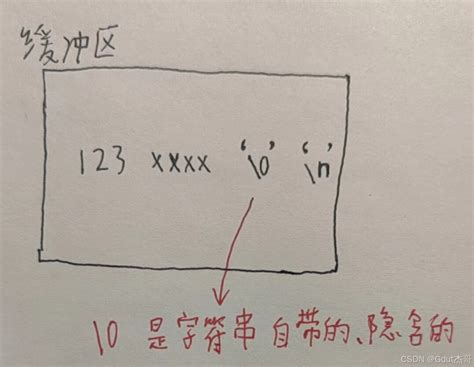 缓冲区
123 xxxx '\0' '\n'
\0 是字符串自带的、隐名的
CSDN @Gout杰哥